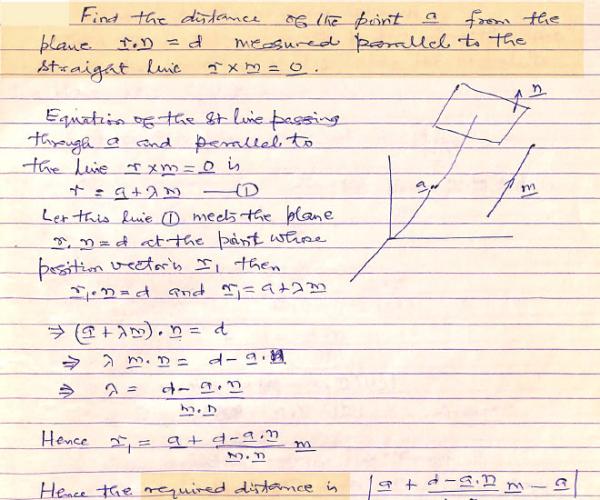 Find the distance of the point a from the
plane r.n = d measured parallel to the
straight line r × m = 0.
Equation of the st line passing
through a and parallel to
the line r × m = 0 is
r = a + λm —(1)
Let this line (1) meets the plane
r. n = d at the point whose
position vector is r₁ then
r₁.n = d and r₁ = a + λm
⇒ (a + λm) . n = d
⇒ λ m.n = d - a.n
⇒ λ = d - a.n / m.n
Hence r₁ = a + d - a.n / m.n m
Hence the required distance is | a + d - a.n / m.n m - a |
n
a
m